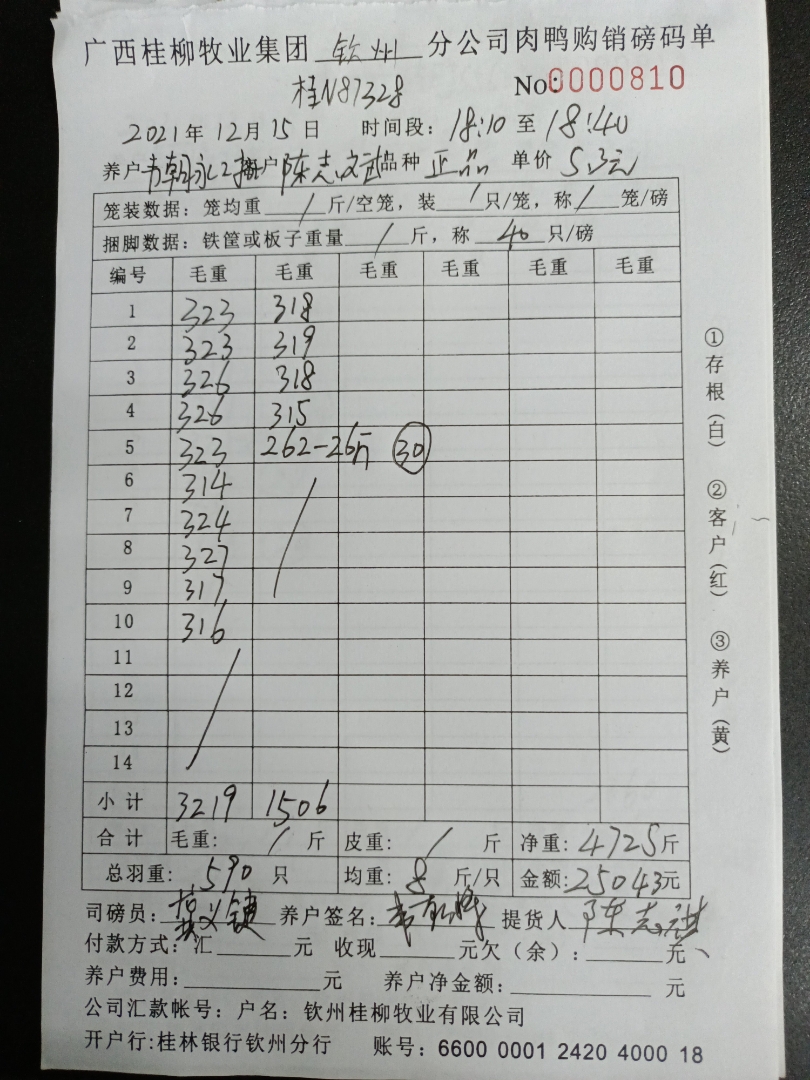 广西桂柳牧业集团 钦州 分公司肉鸭购销磅码单
桂N87328 No:0000810
2021年12月15日 时间段:18:10至18:40
养户 韦朝永 户 陈志文武 品种 正品 单价 5.3元
笼装数据:笼均重 / 斤/空笼,装 / 只/笼,称 / 笼/磅
捆脚数据:铁筐或板子重量 / 斤,称 40 只/磅
编号 毛重 毛重 毛重 毛重 毛重 毛重
1 323 318
2 323 319
3 326 318
4 326 315
5 323 262-26斤 30
6 314
7 324
8 327
9 317
10 316
11
12
13
14
小计 3219 1506
合计 毛重: / 斤 皮重: / 斤 净重:4725斤
总羽重: 590 只 均重: 8 斤/只 金额:25043元
司磅员: 养户签名: 提货人 陈志
付款方式:汇 元 收现 元欠(余): 元
养户费用: 元 养户净金额: 元
公司汇款帐号:户名:钦州桂柳牧业有限公司
开户行:桂林银行钦州分行 账号:6600 0001 2420 4000 18
①存根(白) ②客户(红) ③养户(黄)